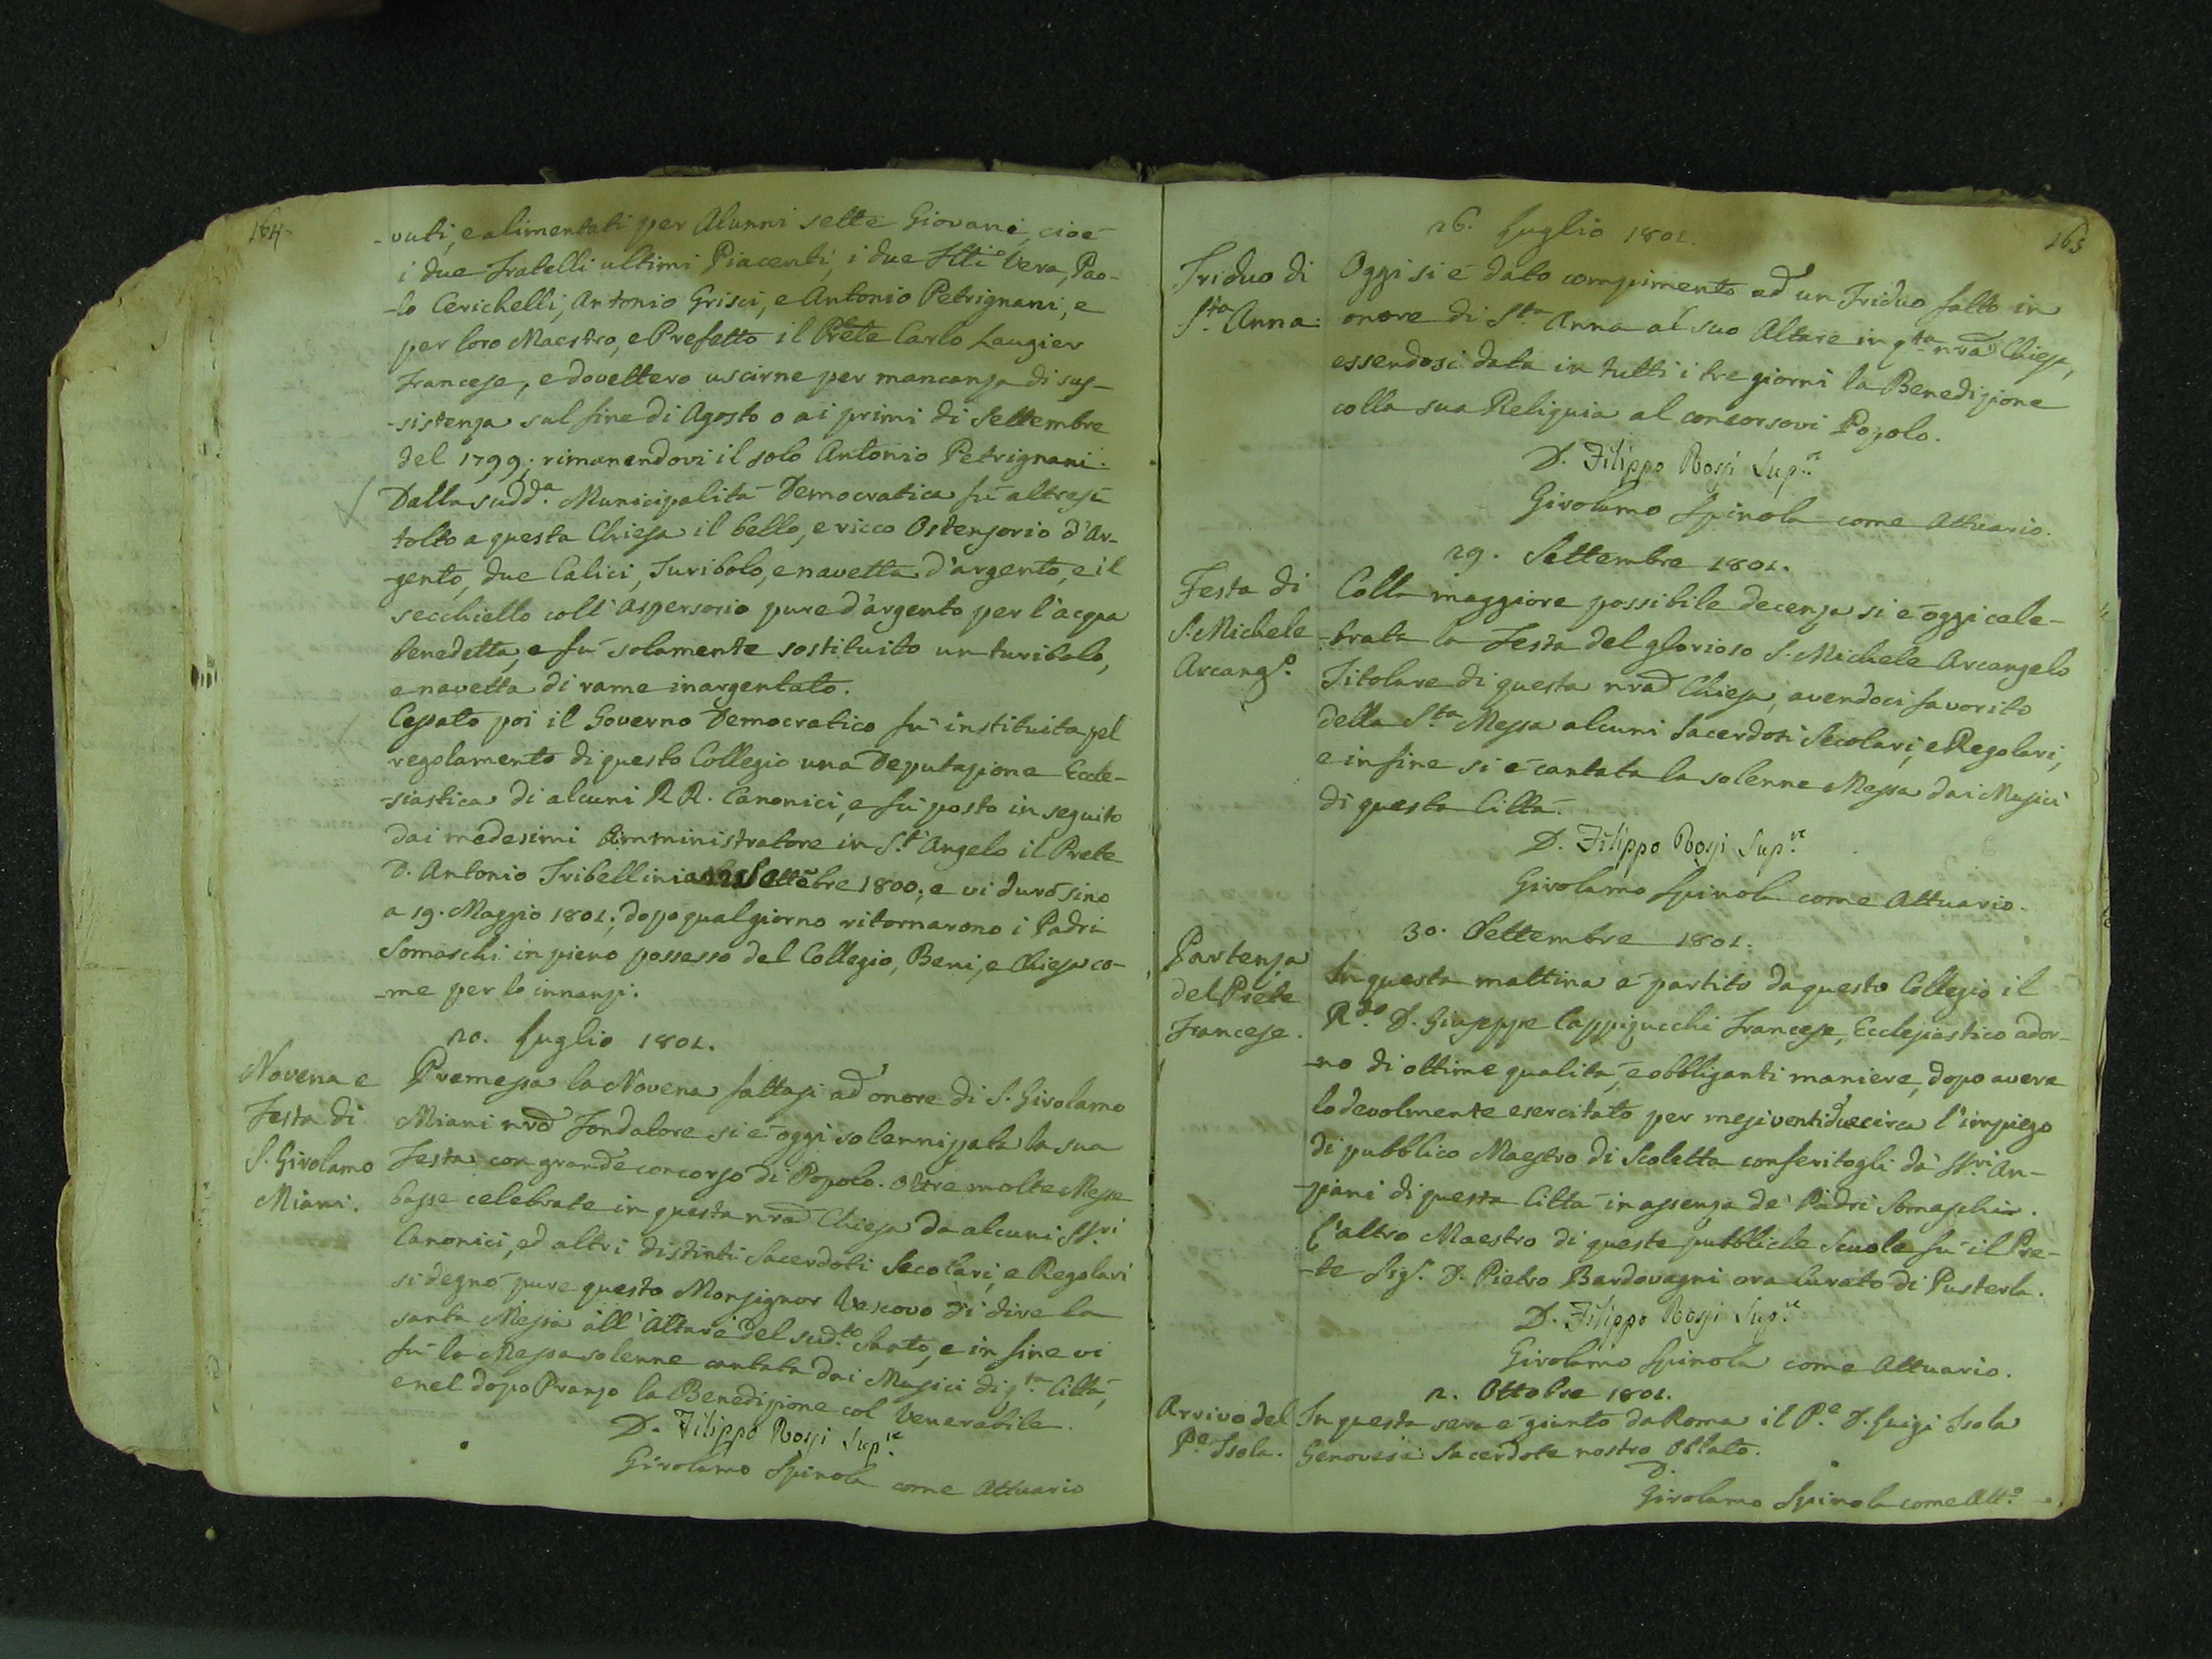 164.
-vuti, e alimentati per Alunni sette Giovani, cioè
i due Fratelli ultimi Piacenti, i due Flli Vera, Pao-
-lo Cerichelli, Antonio Grisci, e Antonio Petrignani, e
per loro Maestro, e Prefetto il Prete Carlo Laugier
Francese, e dovettero uscirne per mancanza di sus-
-sistenza sul fine di Agosto o ai primi di Settembre
del 1799; rimanendovi il solo Antonio Petrignani.
Dalla sudd.a Municipalità Democratica fù altresì
tolto a questa Chiesa il bello, e ricco Ostensorio d'Ar-
-gento, due Calici, Turibolo, e navetta d'argento, e il
secchiello coll'aspersorio pure d'argento per l'acqua
benedetta, e fù solamente sostituito un turibolo,
e navetta di rame inargentato.
Cessato poi il Governo Democratico fù instituita pel
regolamento di questo Collegio una Deputazione Eccle-
-siastica di alcuni RR. Canonici, e fù posto in seguito
dai medesimi Amministratore in S.t Angelo il Prete
D. Antonio Tribellini Settēbre 1800; e vi durò sino
a 19. Maggio 1801; dopo qual giorno ritornarono i Padri
Somaschi in pieno possesso del Collegio, Beni, e Chiesa co-
-me per lo innanzi.
20. Luglio 1801.
Novena e
Festa di
S. Girolamo
Miani.
Premessa la Novena fattasi ad onore di S. Girolamo
Miani nrō Fondatore si è oggi solennizzata la sua
Festa con grande concorso di Popolo. Oltre molte Messe
basse celebrate in questa nrā Chiesa da alcuni SSri
Canonici, ed altri distinti Sacerdoti Secolari, e Regolari
si degnò pure questo Monsignor Vescovo di dire la
santa Messa all'Altare del sud.to Santo, e in fine vi
fù la Messa solenne cantata dai Musici di q.ta Città,
e nel dopo Pranzo la Benedizione col Venerabile.
D. Filippo Rossi Sup.re
Girolamo Spinola come Attuario
165
26. Luglio 1801.
Triduo di
S.ta Anna.
Oggi si è dato compimento ad un Triduo fatto in
onore di S.ta Anna al suo Altare in q.ta nrā Chiesa,
essendosi data in tutti i tre giorni la Benedizione
colla sua Reliquia al concorsovi Popolo.
D. Filippo Rossi Sup.re
Girolamo Spinola come Attuario.
29. Settembre 1801.
Festa di
S. Michele
Arcang.o
Colla maggiore possibile decenza si è oggi cele-
-brata la Festa del glorioso S. Michele Arcangelo
Titolare di questa nrā Chiesa, avendoci favorito
della S.ta Messa alcuni Sacerdoti Secolari, e Regolari,
e in fine si è cantata la solenne Messa dai Musici
di questa Città.
D. Filippo Rossi Sup.re
Girolamo Spinola come Attuario.
30. Settembre 1801.
Partenza
del Prete
Francese.
In questa mattina è partito da questo Collegio il
R.do D. Giuseppe Cappizucchi Francese, Ecclesiastico ador-
-no di ottime qualità, e obbliganti maniere, dopo avere
lodevolmente esercitato per mesi ventidue circa l'impiego
di pubblico Maestro di Scoletta conferitogli da' SSri An-
-ziani di questa Città in assenza de' Padri Somaschi.
L'altro Maestro di queste pubbliche Scuole fù il Pre-
-te Sig.r D. Pietro Bardovagni ora Curato di Pusterla.
D. Filippo Rossi Sup.re
Girolamo Spinola come Attuario.
2. Ottobre 1801.
Arrivo del
P.e Isola.
In questa sera è giunto da Roma il P.e D. Luigi Isola
Genovese Sacerdote nostro Oblato.
D.
Girolamo Spinola come Att.o